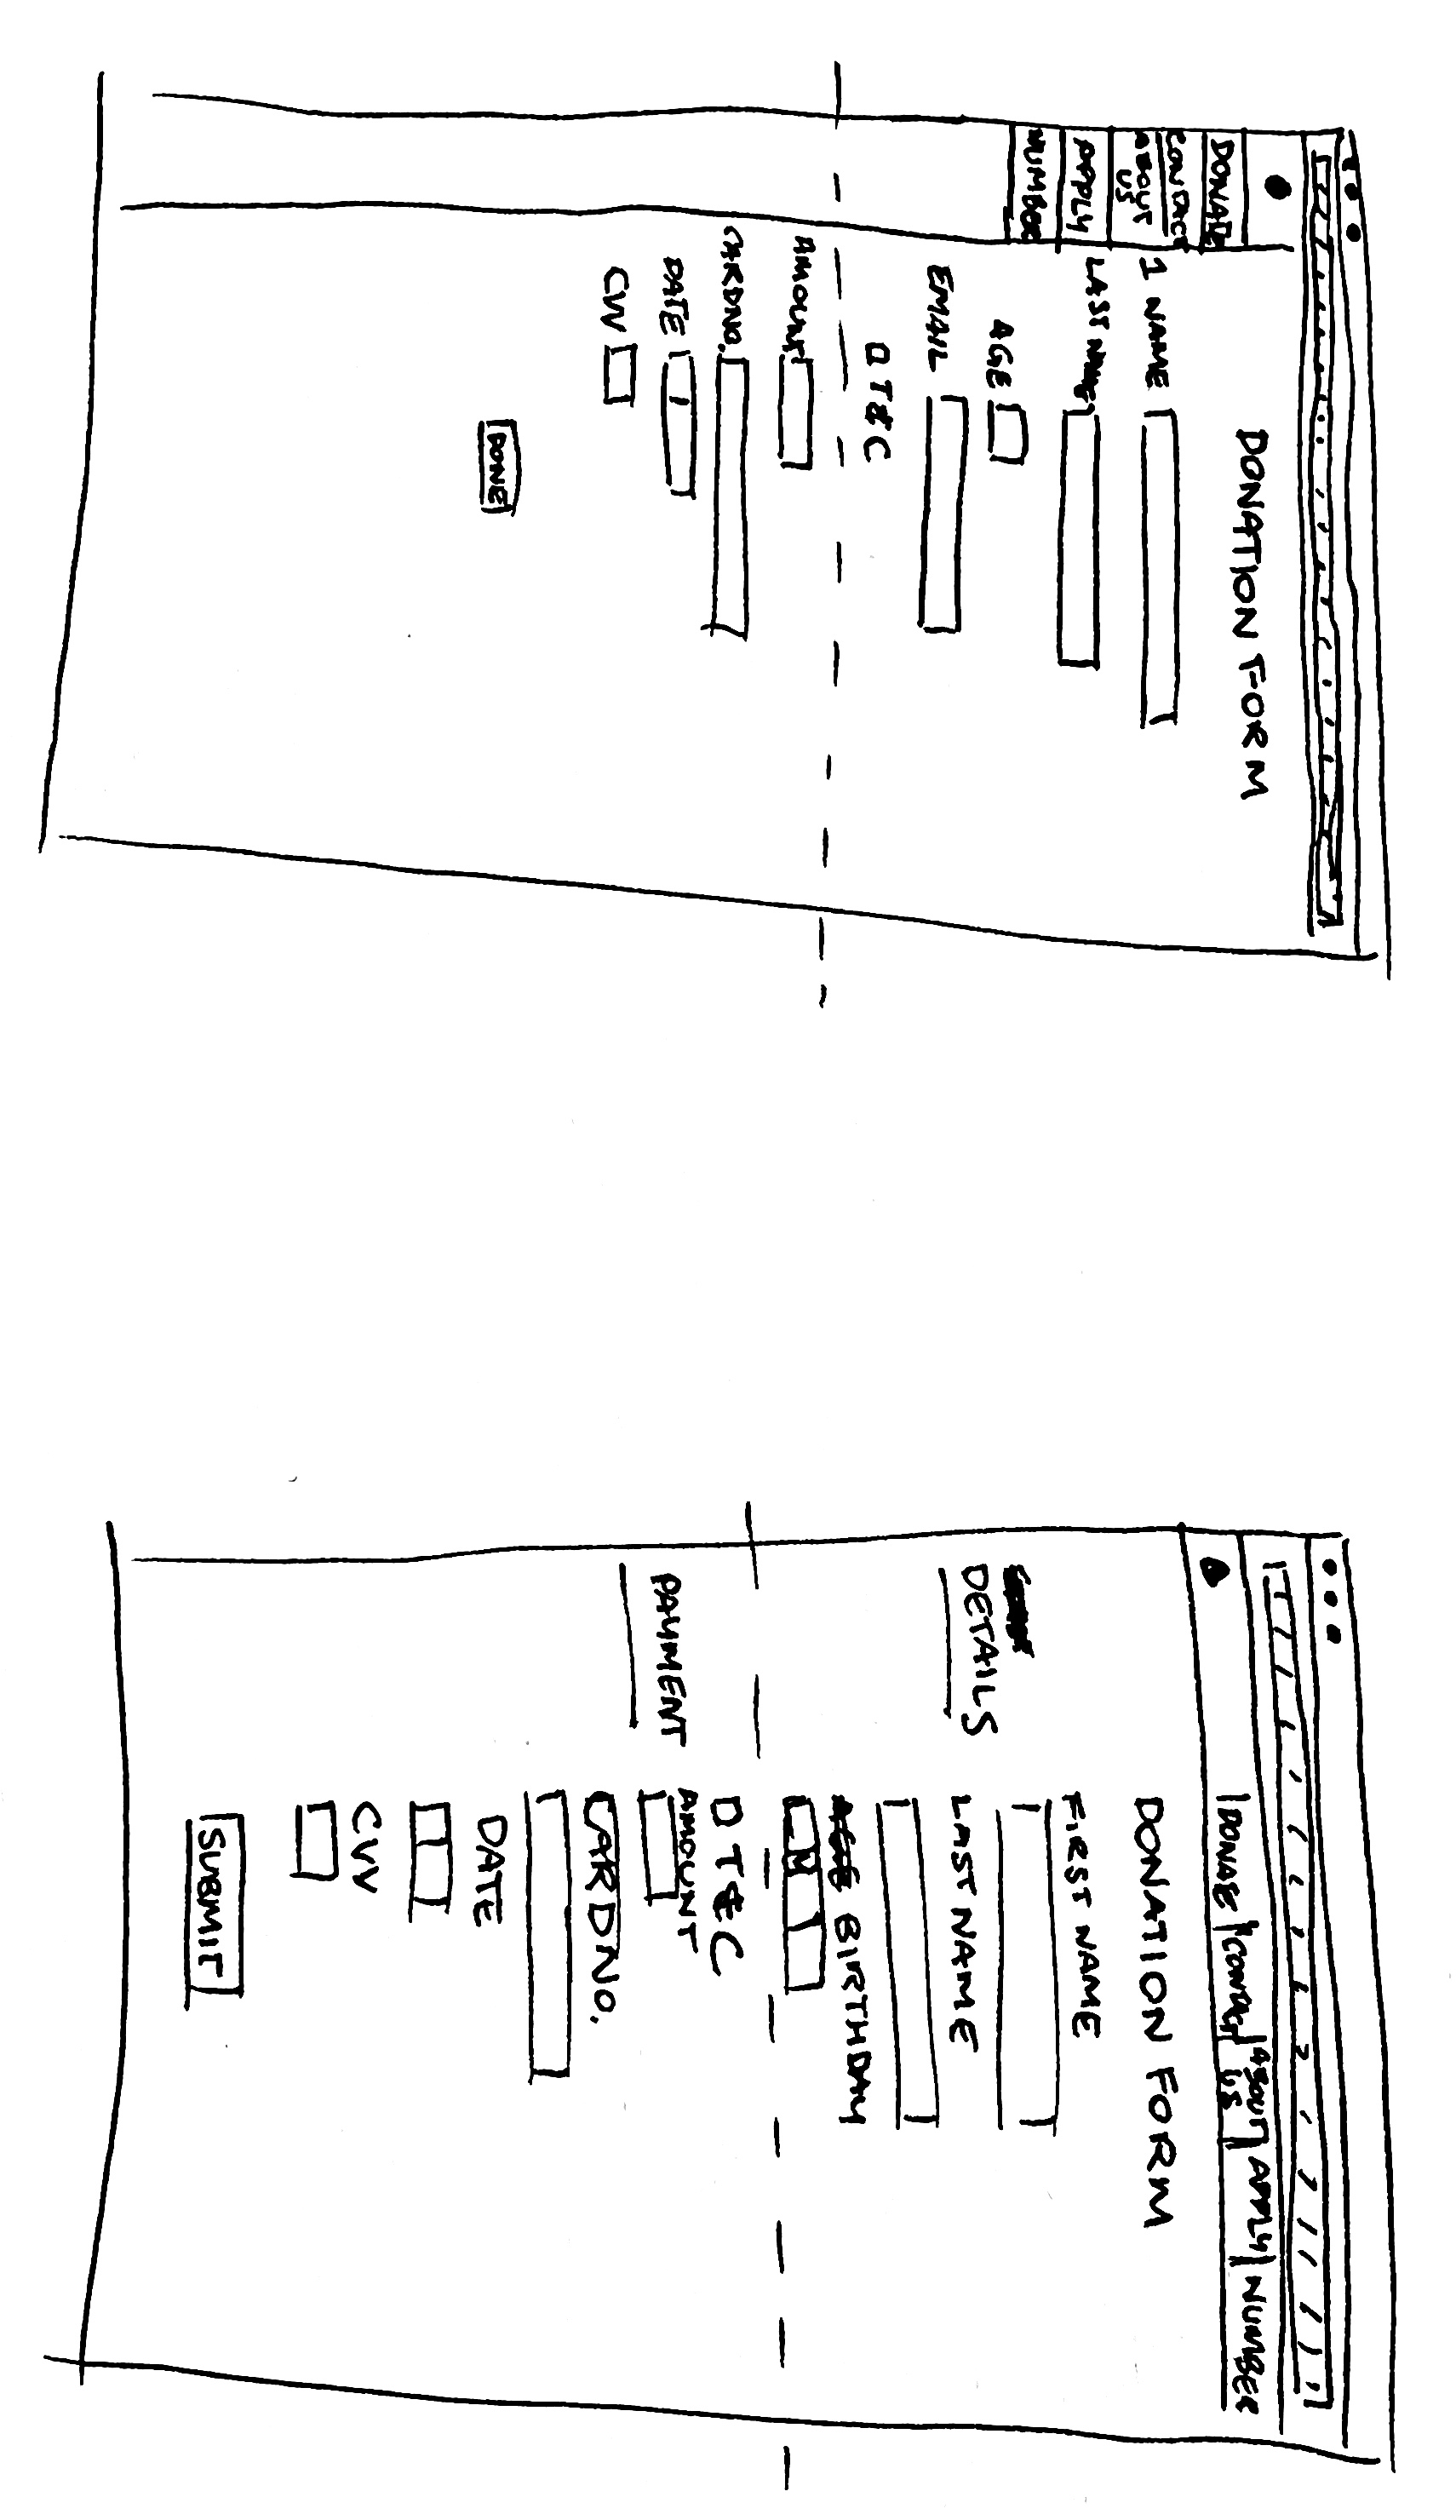 DONATION FORM
DONATE
CONTACT
ABOUT
US
APPLY
NUMBER
1 NAME
LAST NAME
AGE
EMAIL
T&C
AMOUNT
CARDNO.
DATE
CVV
DONE
DONATE CONTACT ABOUT US APPLY NUMBER
DONATION FORM
DETAILS
FIRST NAME
LAST NAME
AGE BIRTHDAY
T&C
PAYMENT
AMOUNT
CARDNO.
DATE
CVV
SUBMIT